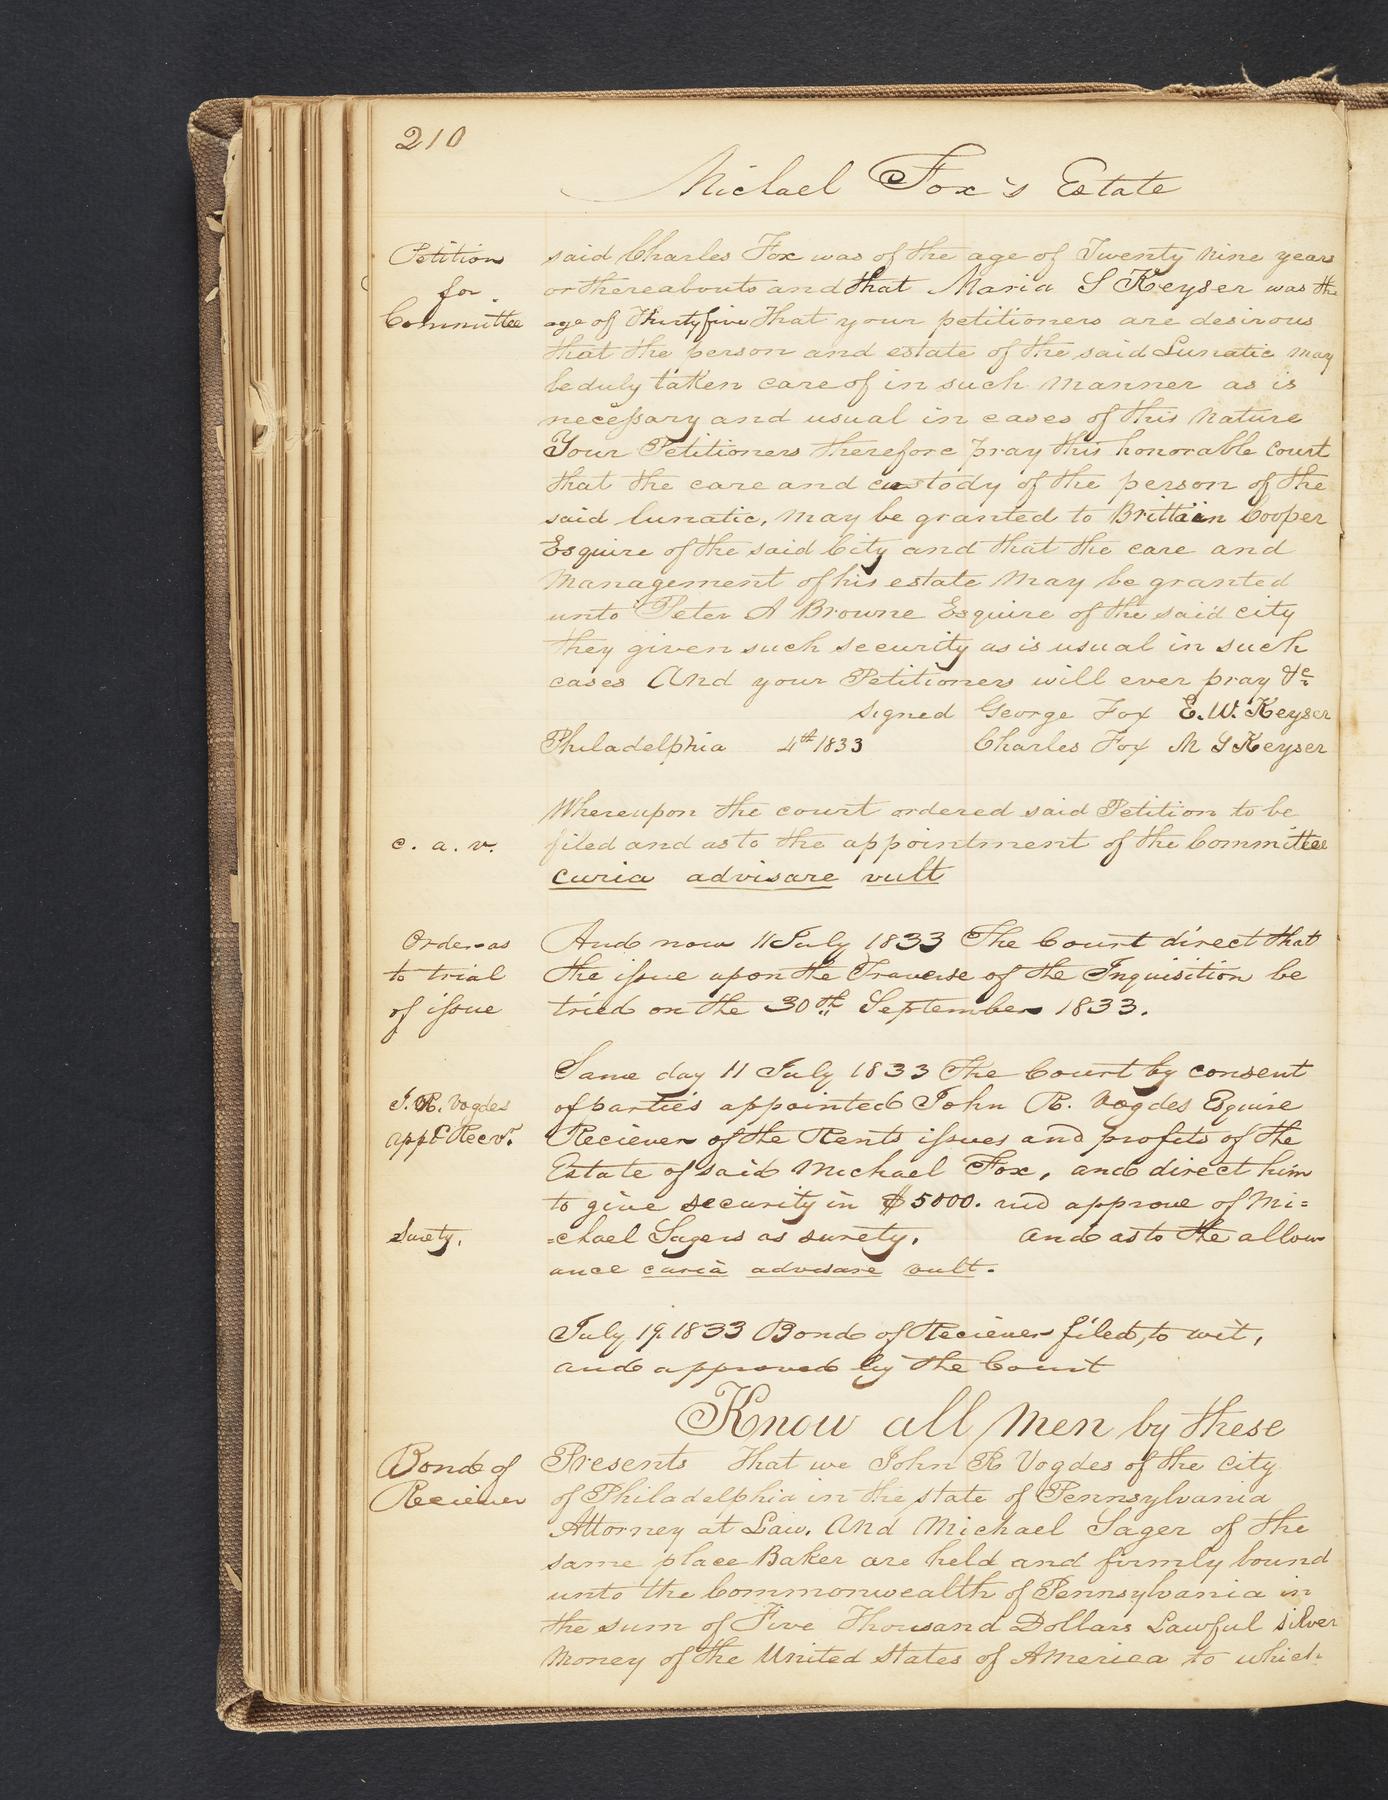 210
Michael Fox's Estate
Petition
for
Committee
said Charles Fox was of the age of Twenty nine years
or thereabouts and that Maria S Keyser was the
age of Thirty five That your petitioners are desirous
that the person and estate of the said Lunatic may
be duly taken care of in such manner as is
necessary and usual in cases of this nature
Your Petitioners therefore pray this honorable court
that the care and custody of the person of the
said lunatic, may be granted to Brittain Cooper
Esquire of the said City and that the care and
management of his estate may be granted
unto Peter A Browne Esquire of the said city
they given such security as is usual in such
cases And your Petitioners will ever pray &c
signed George Fox E. W. Keyser
Philadelphia 4th 1833 Charles Fox M S Keyser
Whereupon the court ordered said Petition to be
c. a. v.
filed and as to the appointment of the Committee
curia advisare vult
Order as
to trial
of issue
And now 11 July 1833 The Court direct that
the issue upon the Traverse of the Inquisition be
tried on the 30th September 1833.
Same day 11 July 1833 The Court by consent
J. R. Vogdes
appd Recvr.
of parties appointed John R. Vogdes Esquire
Reciever of the Rents issues and profits of the
Estate of said Michael Fox, and direct him
to give security in $5000. and approve of Mi=
Surety.
=chael Sagers as surety. and as to the allow
ance curia advisare vult.
July 19. 1833 Bond of Reciever filed, to wit,
and approved by the Court
Know all men by these
Bond of
Reciever
Presents That we John R Vogdes of the city
of Philadelphia in the state of Pennsylvania
Attorney at Law. And Michael Sager of the
same place Baker are held and firmly bound
unto the Commonwealth of Pennsylvania in
the sum of Five Thousand Dollars Lawful silver
money of the United States of America to which